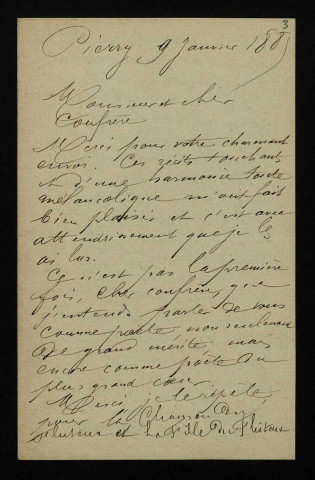 3
Pierry 9 Janvier 188
Monsieur et cher
Confrère
Merci pour votre charmant
envoi. Ces récits touchant
et d'une harmonie toute
mélancolique m'ont fait
bien plaisir et c'est avec
attendrissement que je les
ai lus.
Ce n'est pas la première
fois, cher confrère, que
j'entends parler de vous
comme poète non seulement
de grand mérite mais
encore comme poète du
plus grand cœur
Merci, je le répète,
pour la Chanson du
et la Fille du